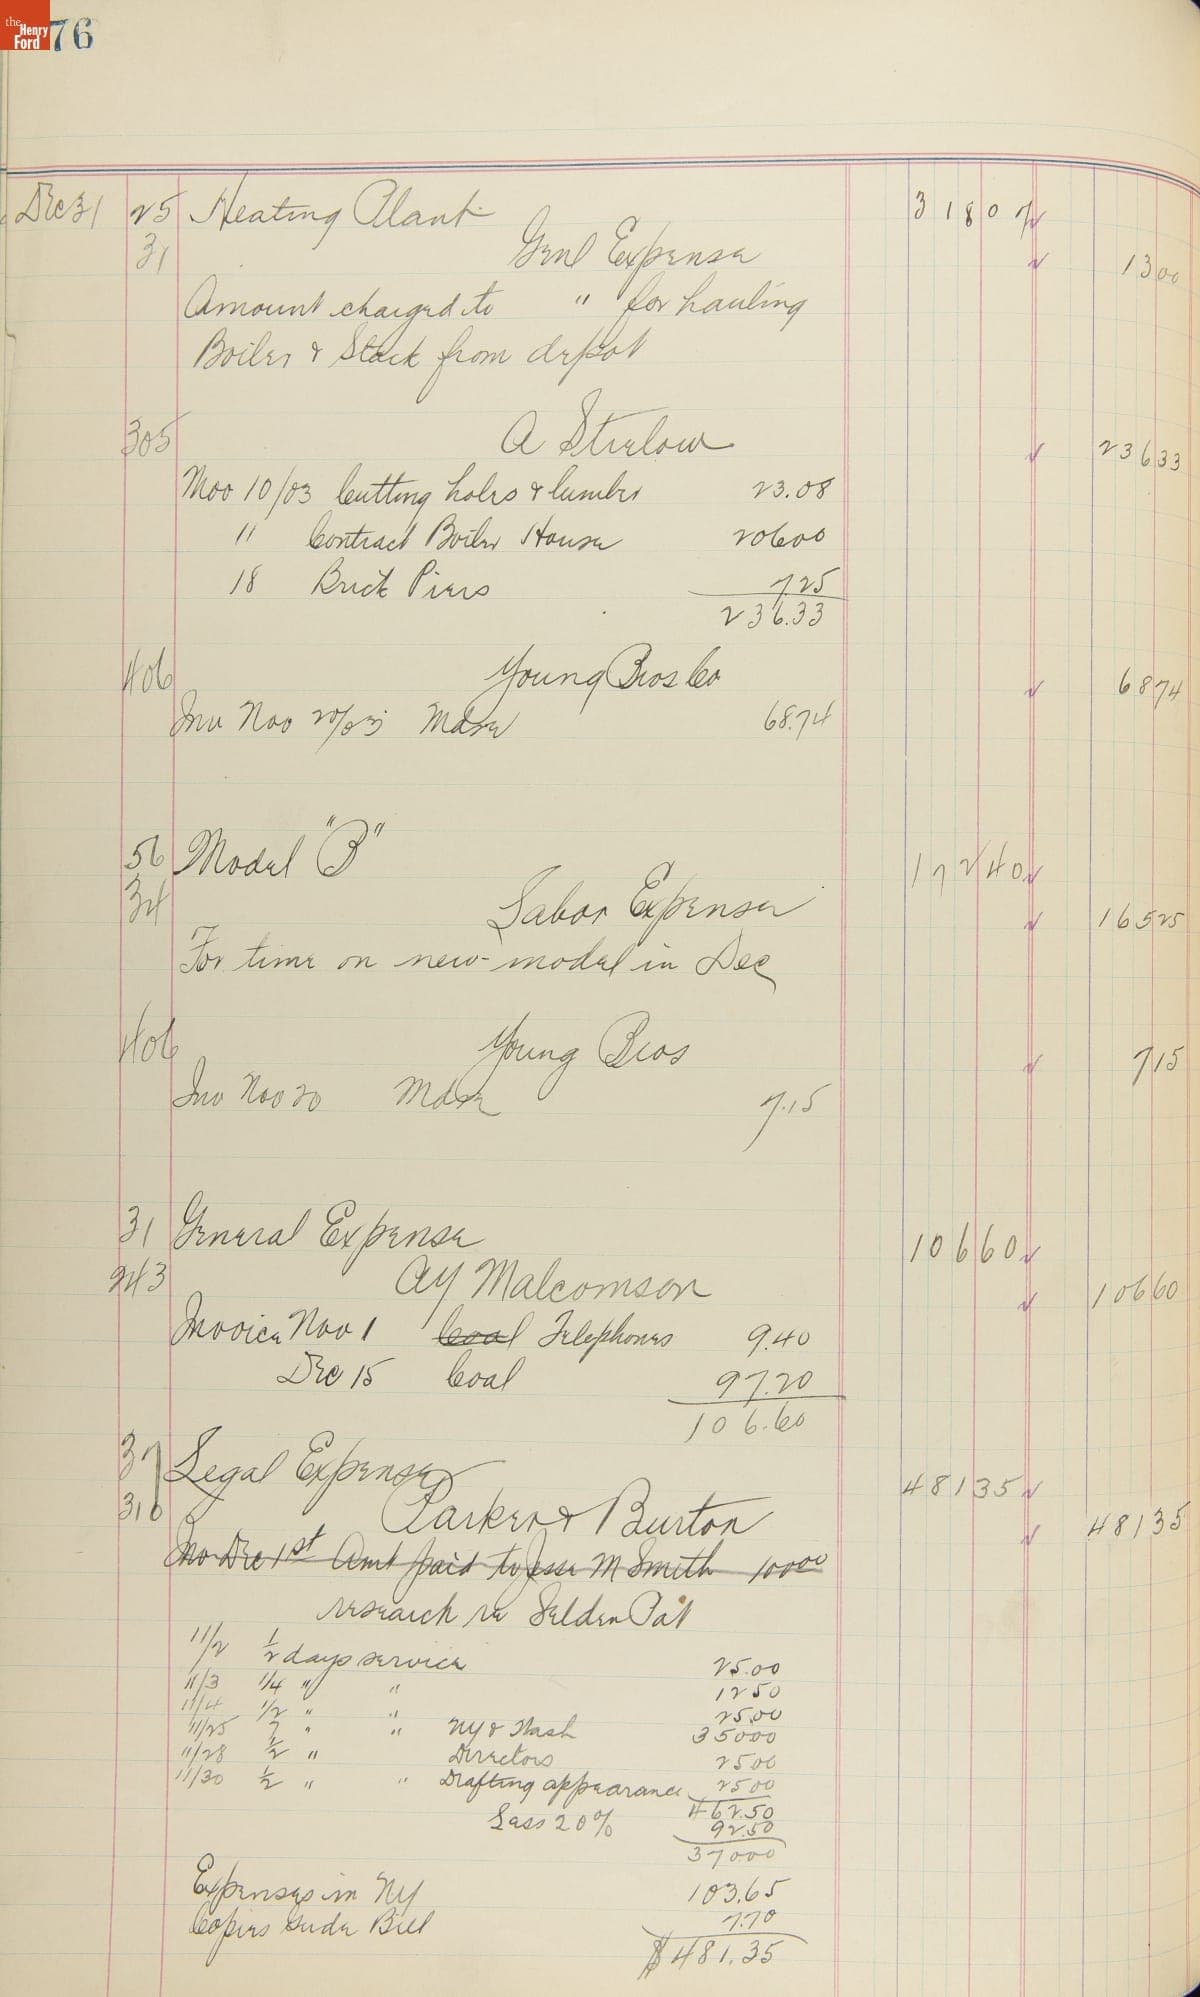 the Henry Ford
76
Dec 31 25 Heating Plant 318 07
31 Genl Expense 13 00
Amount charged to " for hauling
Boiler & Stack from depot
305 A Strelow 236 33
Nov 10/03 Cutting holes & lumber 23.08
" Contract Boiler House 206 00
18 Brick Piers 7.25
236.33
406 Young Bros Co 68 74
Inv Nov 20/03 Mdse 68.74
56 Model "B" 172 40
34 Labor Expense 165 25
For time on new model in Dec
406 Young Bros 7 15
Inv Nov 20 Mdse 7.15
31 General Expense 106 60
243 AY Malcomson 106 60
Invoice Nov 1 Coal Telephones 9.40
Dec 15 Coal 97.20
106.60
37 Legal Expense 481 35
310 Parker & Burton 481 35
Inv Dec 1st Amt paid to Jesse M Smith 100 00
research re Selden Pat
11/2 1/2 days service 25.00
11/3 1/4 " " 12 50
11/4 1/2 " " 25.00
11/25 7 " " NY & Wash 350 00
11/28 1/2 " Directors 25 00
11/30 1/2 " " Drafting appearance 25 00
462.50
Less 20% 92.50
370 00
Expenses in NY 103.65
Copies Bill 7.70
$481.35